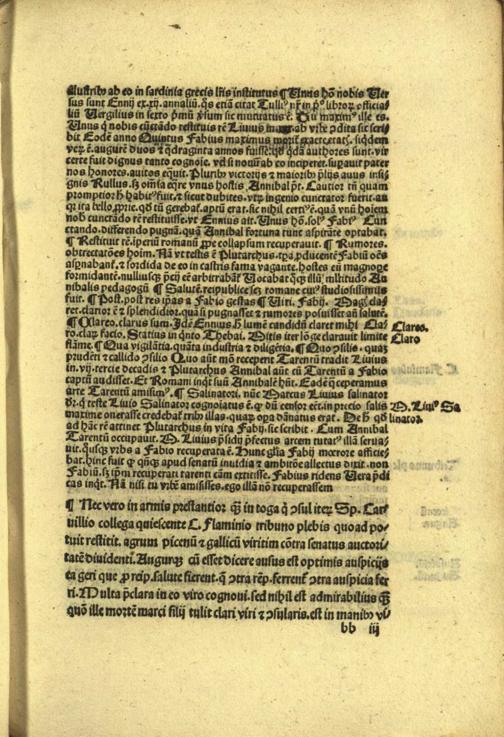 illustribꝰ ab eo in sardinia grecis lr̄is institutus ¶ Unus hō nobis Uer
sus sunt Ennij ex.xij.annaliū.q̄s etiā citat Tulliꝰ
liū Uergilius in sexto p̄mū ꝟsum sic mutuatus ē. Tu maximꝰ ille es.
Unus q̇ nobis cūctādo restituis rē Liuius ab vrbe ꝯdita sic scri
bit Eodē anno Quintus Fabius maximus morit̄ exacte etatꝭ. siq̇dem
veꝝ ē. augurē duos ⁊ q̇draginta annos fuisse qd̄ā authores sunt. vir
certe fuit dignus tanto cognoīe. vel si nouū ab eo inciperet. supauit pater
nos honores. auitos equit. Pluribꝰ victorijs ⁊ maioribꝰ p̄lijs auus insi
gnis Rullus. sꝫ oīa eq̄re vnus hostis Annibal pt̄. Cautior tn̄ quam
promptior hic habitꝰ fuit. ⁊ sicut dubites. vtꝝ ingenio cunctator fuerit. an
q̇a ita bello aptū erat. sic nihil certiꝰ ē. quā vnū hoīem
nob̄ cunctādo rē restituisse. vt Ennius ait. Unus hō. Fabiꝰ Cun
ctando. differendo pugnā. qua Annibal fortuna tunc aspirāte optabat.
¶ Restituit rē. imperiū romanū ꝓpe collapsum recuperauit. ¶ Rumores.
obtrectatōes hoim. Nā vt testis ē Plutarchus Fabiū oēs
aspnabant̄. ⁊ sordida de eo in castris fama vagante. hostes eū magnope
formidante. nulliusqꝫ p̄cij eē arbitrabāt̄ Uocabāt qꝫ illū militudo An
nibalis pedagogū ¶ Salutē. reipublice. sꝫ romane cuiꝰ studiosissimꝰ
fuit. ¶ Post. post res ip̄as a Fabio gestas ¶ Uiri. Fabij. Magꝭ cla
ret. clarior ē ⁊ splendidior. qua si pugnasset ⁊ rumores posuisset an̄ salutē.
¶ Clareo. clarus sum. Idē Ennius. h̄ lumē candidū claret mihi Cla
ro. claꝝ facio. Statius in q̇nto Thebai. Mitis iter lōge clarauit limite
flāme. ¶ Qua vigilātia. quanta industria ⁊ diligētia. ¶ Quo ꝯsilio. quaꝫ
prudēti ⁊ callido ꝯsilio Quo aūt mō recepit Tarentū tradit Liuius
in.vij. tercie decadis ⁊ Plutarchus Annibal aūt cū Tarentū a Fabio
captū audisset. Et Romani inquit suū Annibalē hn̄t. Eadē q̇ ceperamus
arte Tarentū amisimꝰ. ¶ Salinatori. nūc Marcus Liuius salinator
dr̄. q̇ teste Liuio Salinator cognoīatus ē. ꝙ dū censor eēt. in precio salis
maxime onerasse credebat̄ tribꝰ illas. quaꝝ opa dānatus erat. De h̄ qd̄
ad hanc rē attinet Plutarchus in vita Fabij. sic scribit. Cum Annibal
Tarentū occupauit. M. Liuius p̄sidij p̄fectus arcem tutatꝰ illā serua
uit. q̇usqꝫ vrbs a Fabio recuperata ē. Hunc gl̄ia Fabij moerore afficie
bat. hinc fuit ꝙ qn̄qꝫ apud senatū inuidia ⁊ ambitōne allectus dixit. non
Fabiū. sꝫ ip̄m recuperati tarenti cām extitisse. Fabius ridens Uera p̄di
cas inqt̄. Nā nisi tu vrbē amisisses. ego illā nō recuperassem
¶ Nec vero in armis prestantior qꝫ in toga q̇ ꝯsul iteꝝ Sp. Car
uillio collega quiescente C. Flaminio tribuno plebis quoad po-
tuit restitit. agrum picenū ⁊ gallicū viritim cōtra senatus auctori/
tatē diuidenti. Augurqꝫ cū esset dicere ausus est optimis auspicijs
ea geri que ꝓ reip. salute fierent. q̄ ꝯtra rēp. ferrent̄ ꝯtra auspicia fer
ri. Multa p̄clara in eo viro cognoui. sed nihil est admirabilius qꝫ
quō ille mortē marci filij tulit clari viri ⁊ ꝯsularis. est in manibꝰ vi
bb iij
Clareo.
Claro
M. Liuiꝰ Sa
linator.